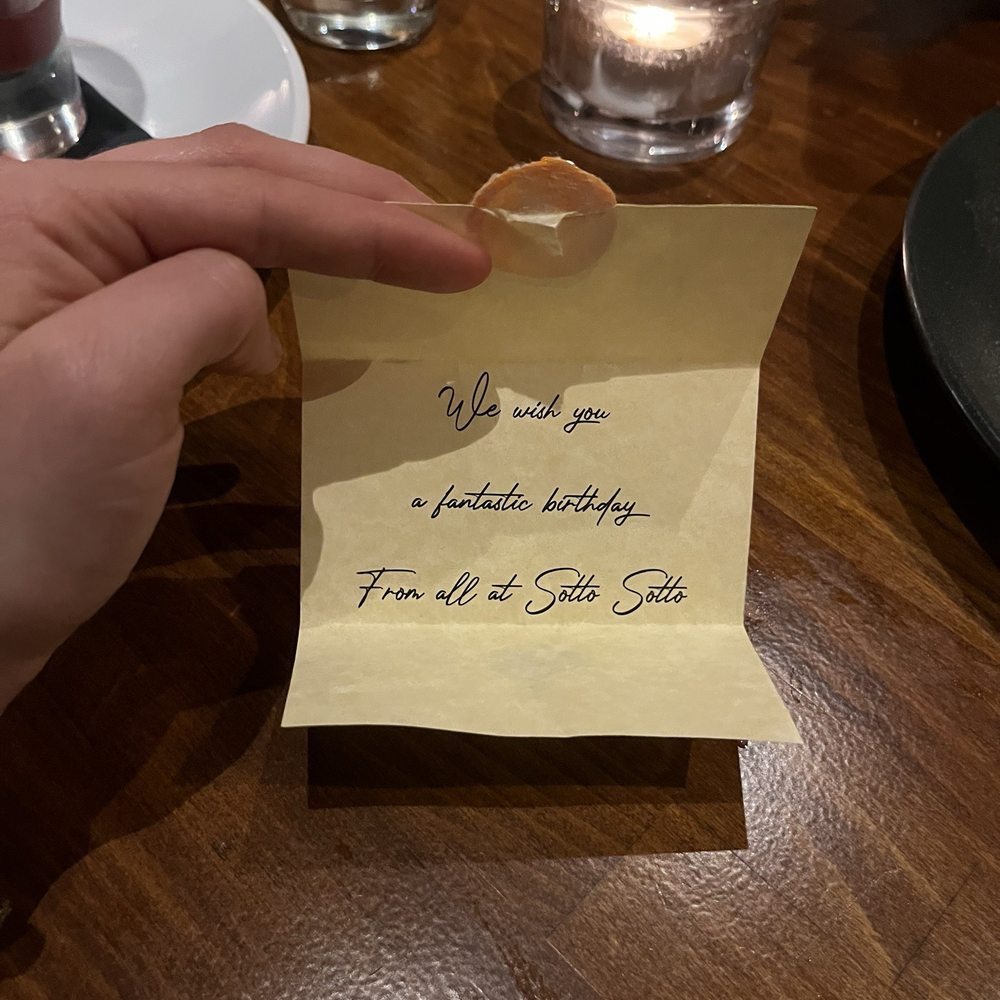 We wish you
a fantastic birthday
From all at Sotto Sotto